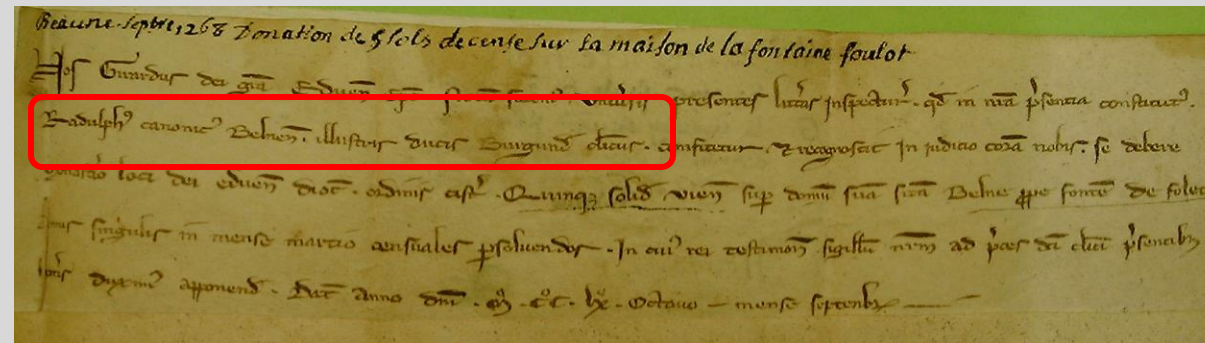 Beaune septre 1268 Donation de 5 sols de cense sur la maison de la fontaine foulot
Nos Girardus dei grã Eduen̄ ep̄s presentes litt̃as inspectur̃ . qd̃ in nrã p̃sentia constitutꝰ .
Radulphꝰ canonicꝰ Belnen̄ . illustris ducis Burgund̃ cl̃icus . confitetur . & recognoscit in iudicio corã nobis . se debere
loci dei eduen̄ dioc̃ . ordinis cist̃ . Quinqꝫ solid̃ vien̄ sup̃ domũ suã sitã Belne ꝓpe fontẽ de folet
singulis in mense martio censuales ꝑsoluendos . In cuiꝰ rei testimon̄ sigillũ nrm̃ ad p̃ces dc̃i cl̃ici p̃sentibꝫ
litt̃is duximꝰ apponend̃ . Dat̃ anno dnĩ . mͦ . cͦcͦ . lxͦ . octauo – mense septenbr̃